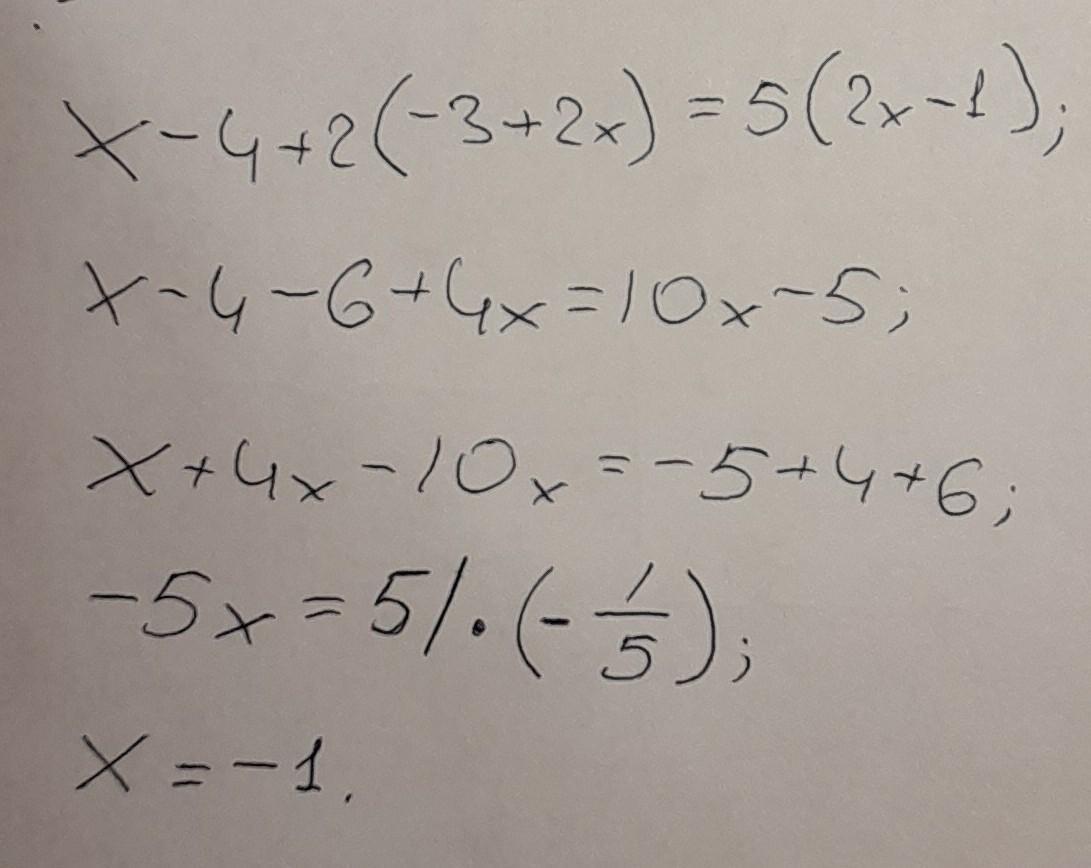 x-4+2(-3+2x)=5(2x-1);
x-4-6+4x=10x-5;
x+4x-10x=-5+4+6;
-5x=5/·(-1/5);
x=-1.